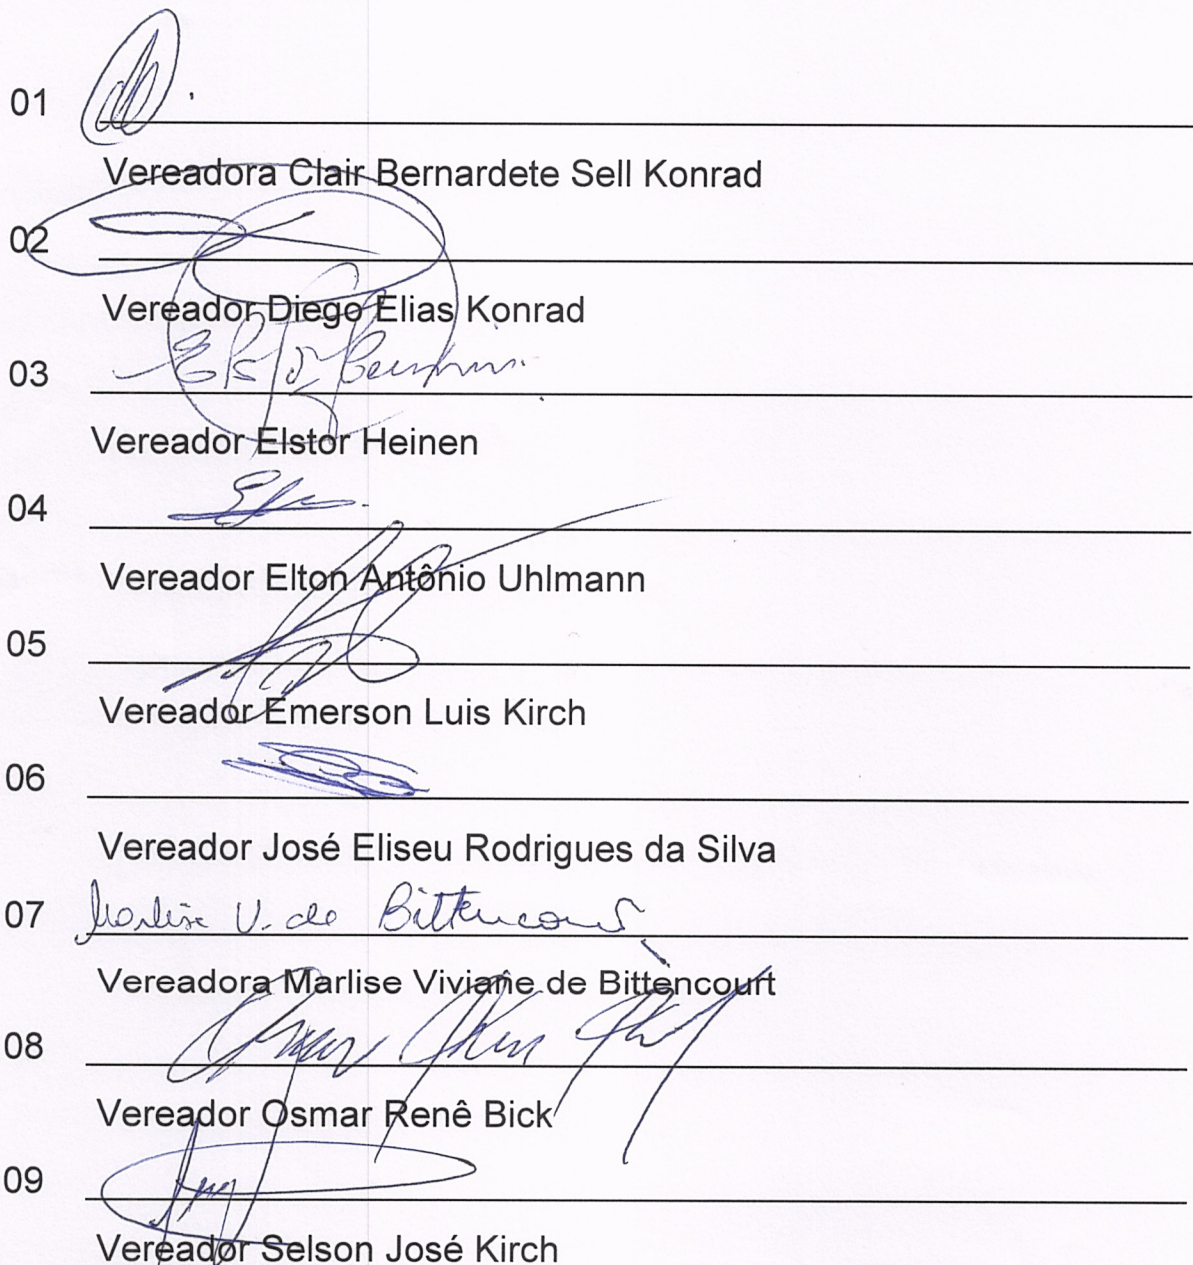 01
Vereadora Clair Bernardete Sell Konrad
02
Vereador Diego Elias Konrad
03
Vereador Elstor Heinen
04
Vereador Elton Antônio Uhlmann
05
Vereador Emerson Luis Kirch
06
Vereador José Eliseu Rodrigues da Silva
07 Marlise V. de Bittencourt
Vereadora Marlise Viviane de Bittencourt
08
Vereador Osmar Renê Bick
09
Vereador Selson José Kirch